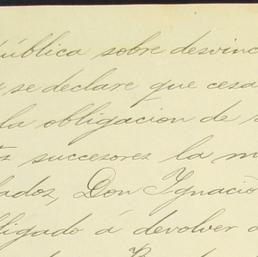 pública sobre desvinc
se declare que cesa
la obligacion de s
succesores la m
lados, Don Ignacio
bligado á devolver a